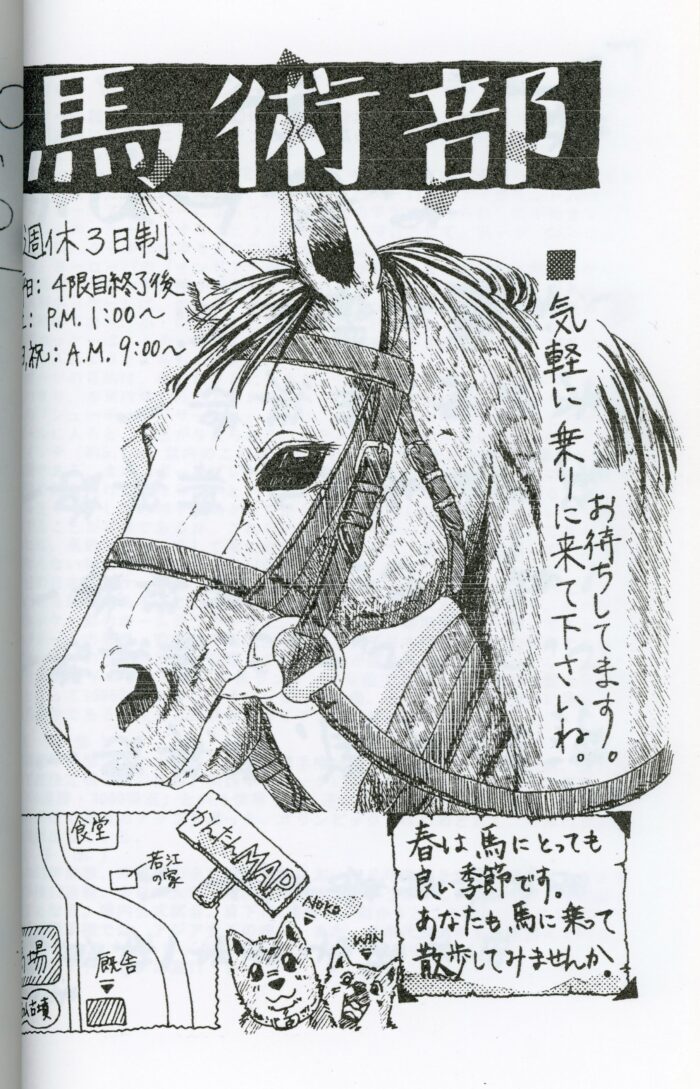 馬術部
週休3日制
日: 4限目終了後
: P.M. 1:00～
祝: A.M. 9:00～
気軽に乗りに来て下さいね。
お待ちしてます。
食堂
若江
の家
かんたんMAP
場
厩舎
古墳
NOKO
WAN
春は馬にとっても
良い季節です。
あなたも馬に乗って
散歩してみませんか。